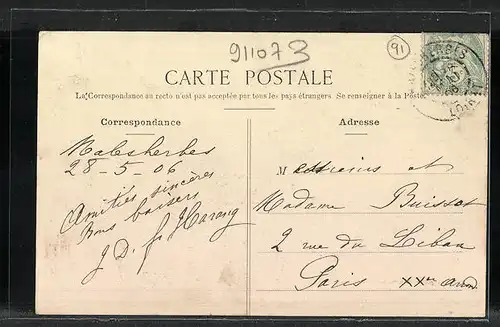 911073
91
CARTE POSTALE
La Correspondance au recto n'est pas acceptée par tous les pays étrangers. Se renseigner à la Poste.
Correspondance
Adresse
Malesherbes
28-5-06
Amitiés sincères
Bons baisers
J. D. Harang
M et
Madame Buisset
2 rue du Liban
Paris XXe